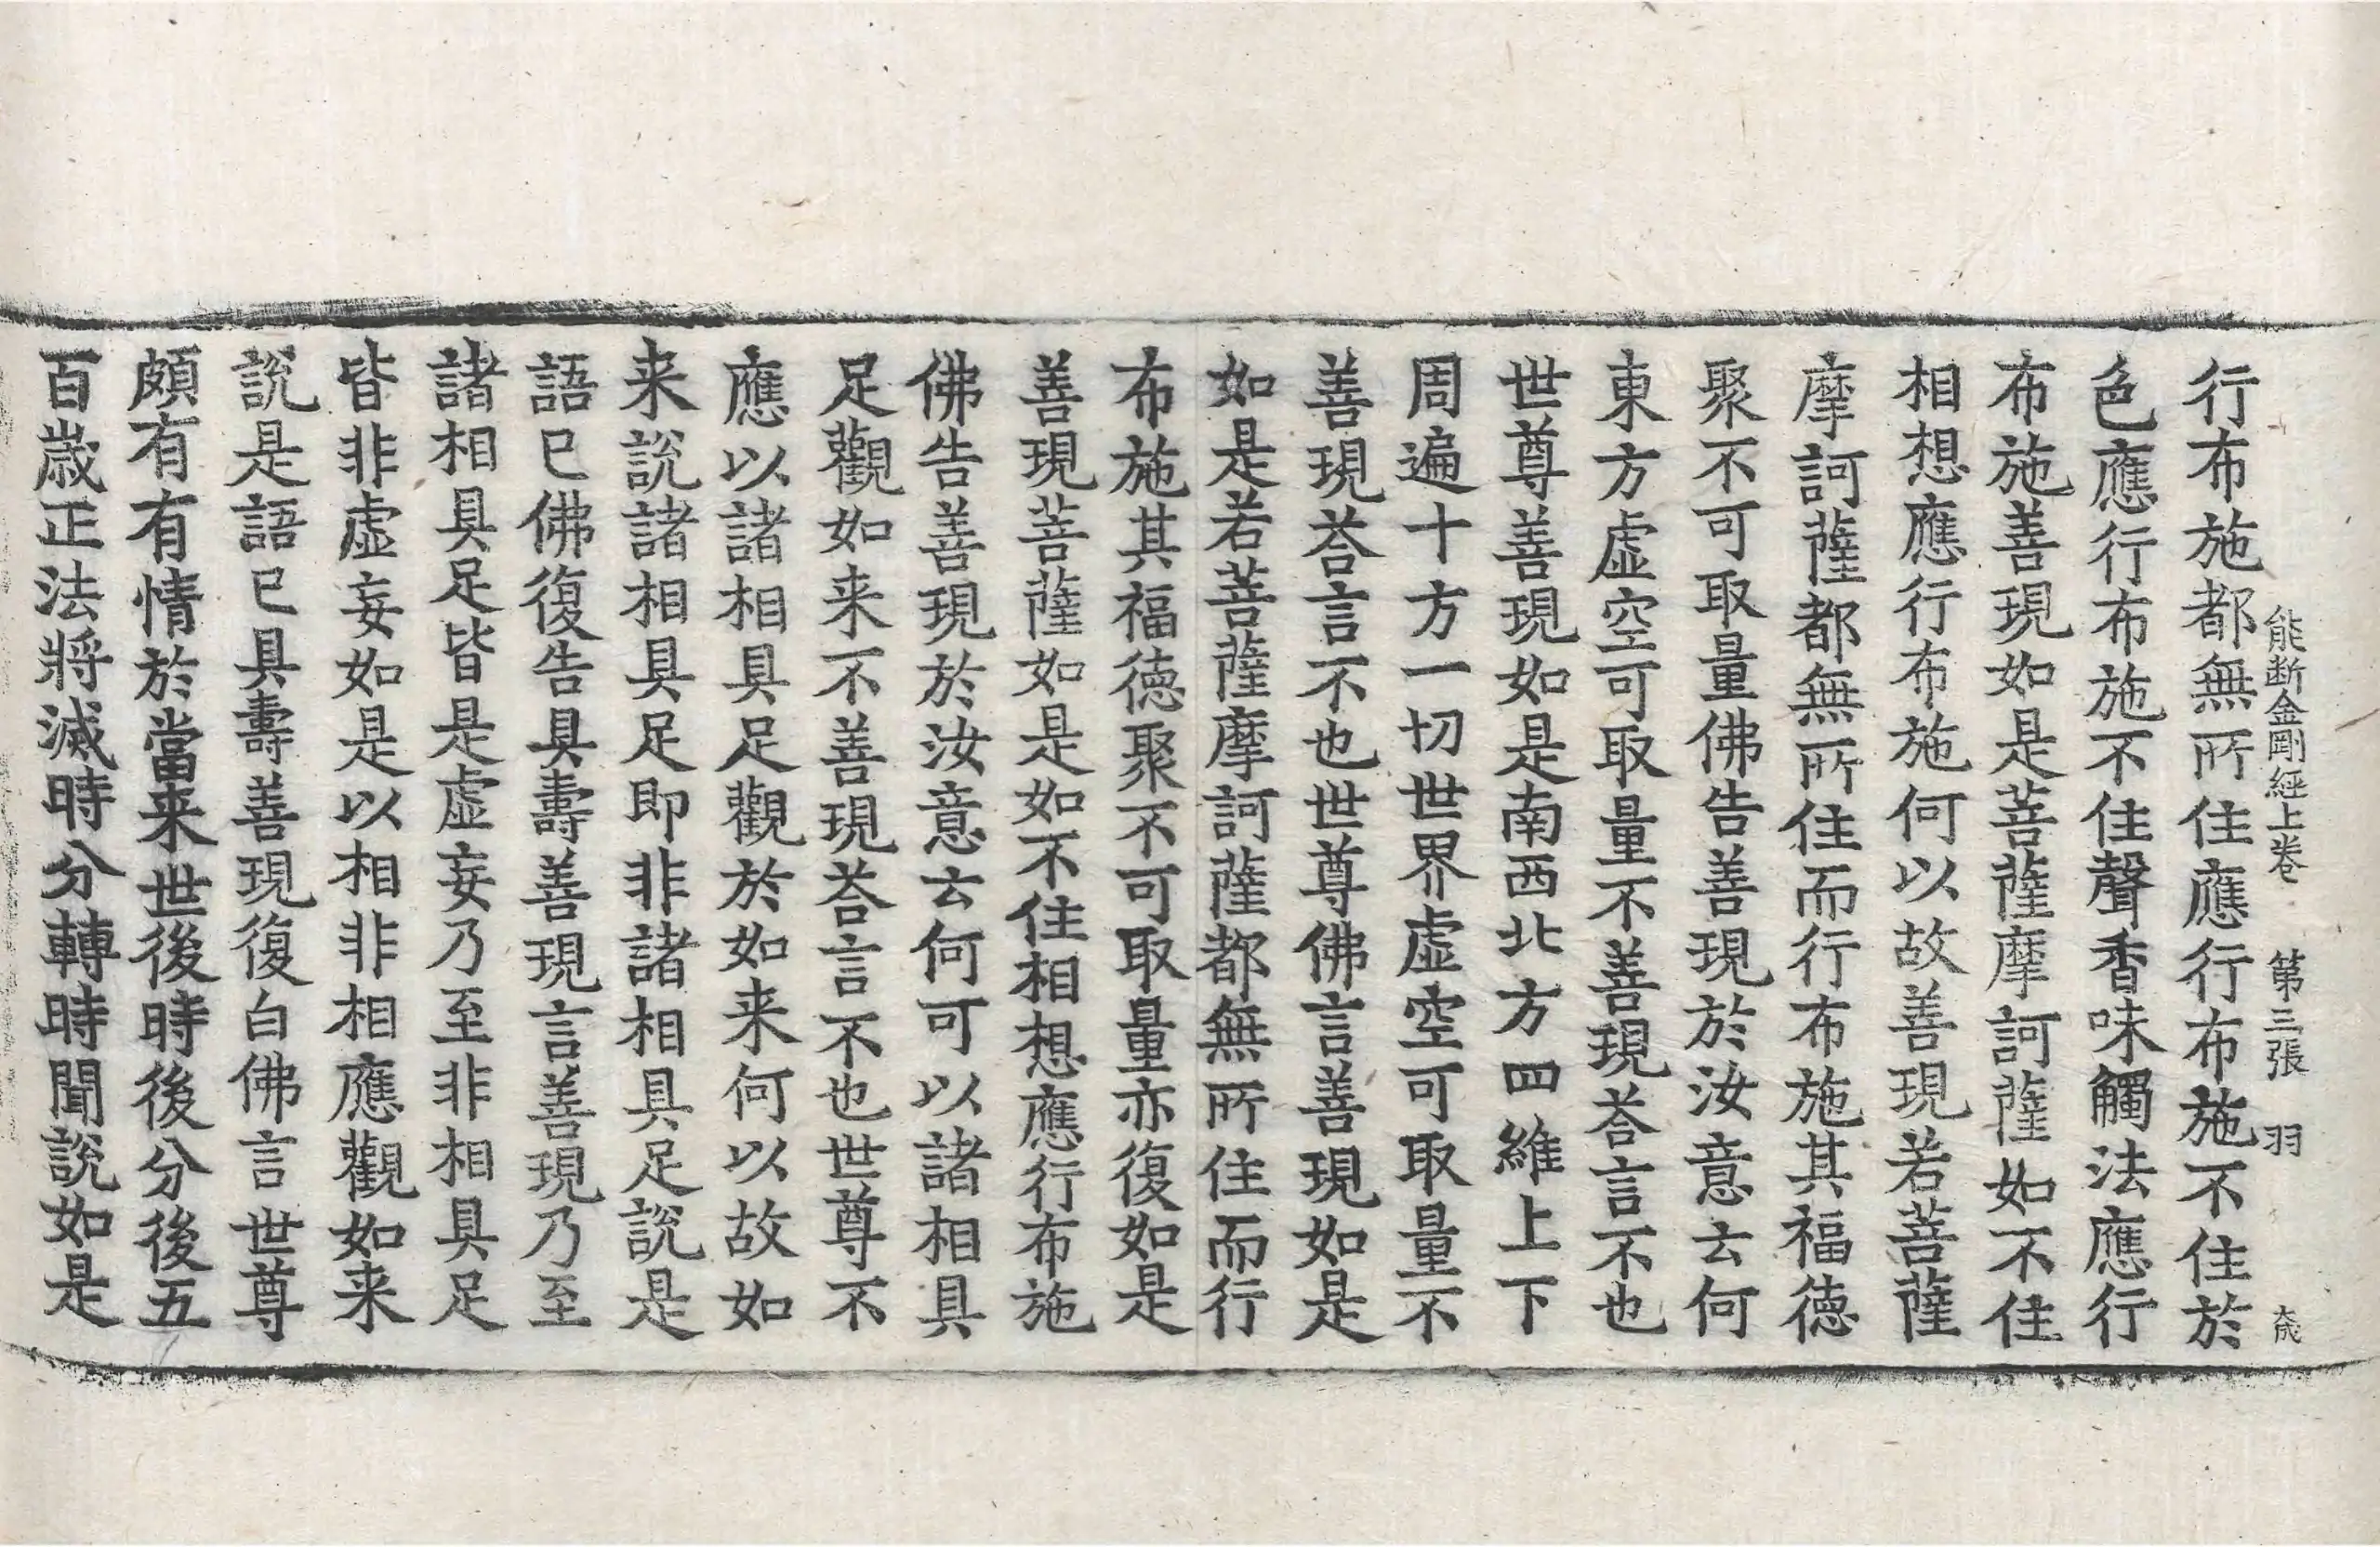 能断金剛經上卷 第三張 羽
行布施都無所住應行布施不住於
色應行布施不住聲香味觸法應行
布施善現如是菩薩摩訶薩如不住
相想應行布施何以故善現若菩薩
摩訶薩都無所住而行布施其福德
聚不可取量佛告善現於汝意云何
東方虛空可取量不善現荅言不也
世尊善現如是南西北方四維上下
周遍十方一切世界虛空可取量不
善現荅言不也世尊佛言善現如是
如是若菩薩摩訶薩都無所住而行
布施其福德聚不可取量亦復如是
善現菩薩如是如不住相想應行布施
佛告善現於汝意云何可以諸相具
足觀如来不善現荅言不也世尊不
應以諸相具足觀於如来何以故如
来說諸相具足即非諸相具足說是
語已佛復告具壽善現言善現乃至
諸相具足皆是虛妄乃至非相具足
皆非虛妄如是以相非相應觀如来
說是語已具壽善現復白佛言世尊
頗有有情於當来世後時後分後五
百歲正法將滅時分轉時聞說如是